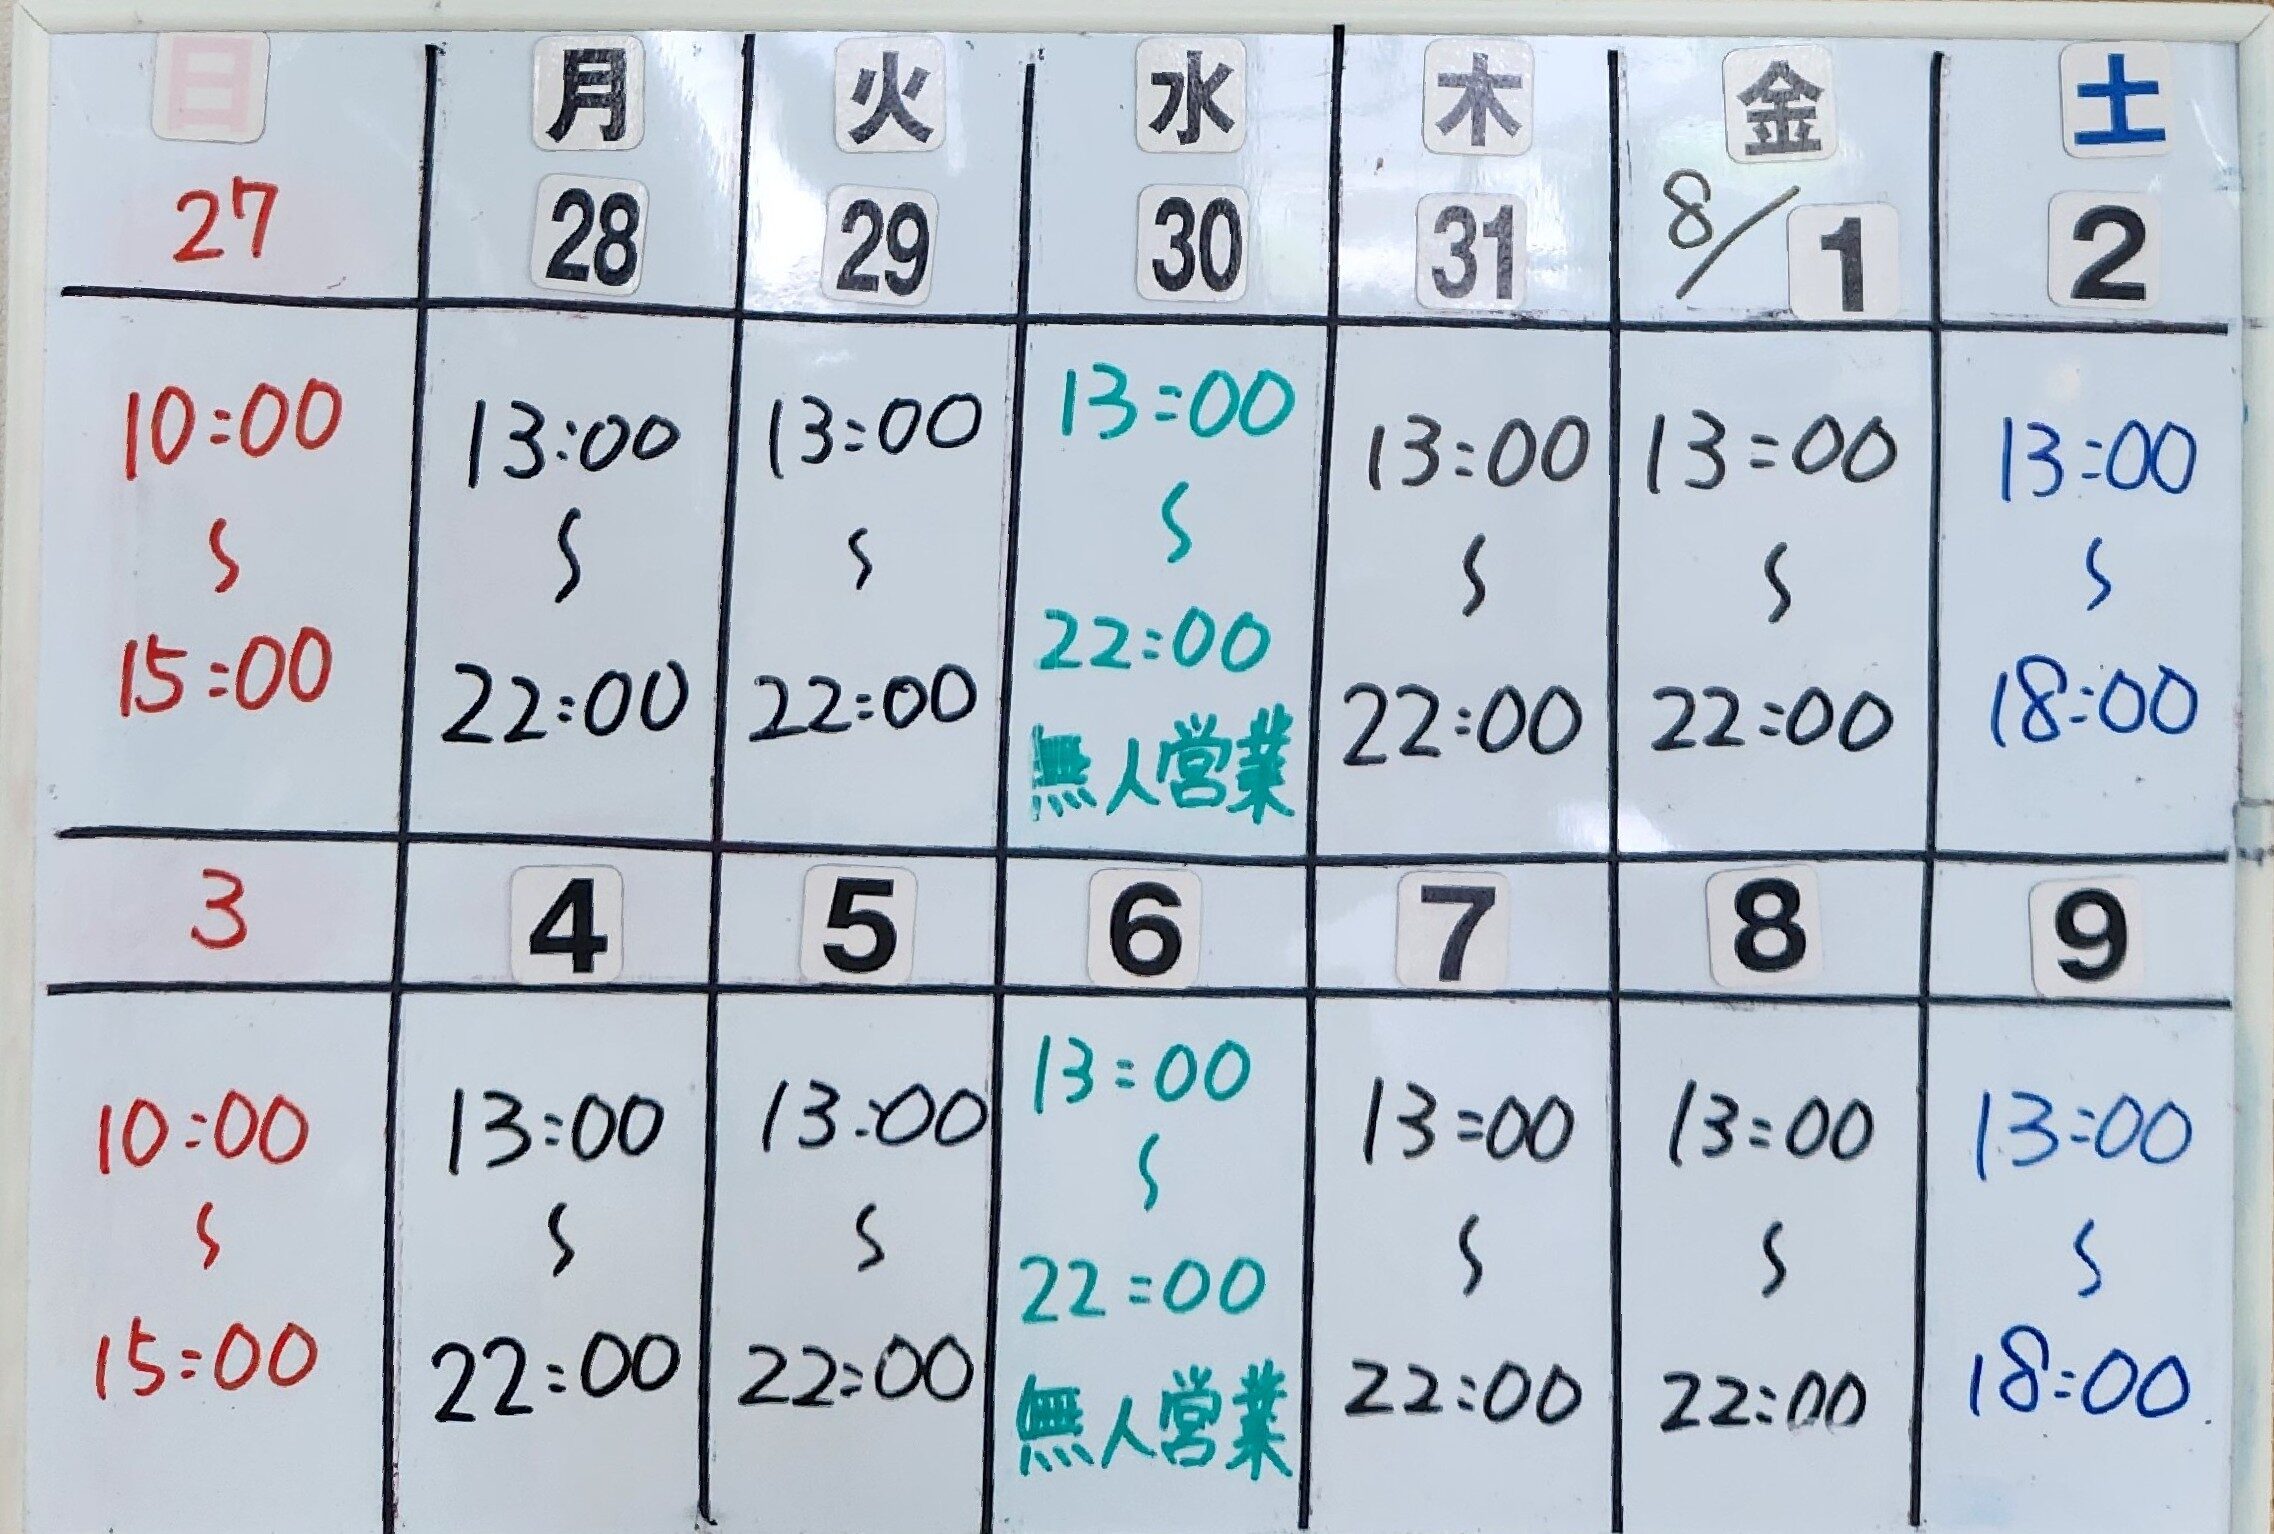 日 月 火 水 木 金 土
27 28 29 30 31 8/1 2
10:00 13:00 13:00 13:00 13:00 13:00 13:00
〜 〜 〜 〜 〜 〜 〜
15:00 22:00 22:00 22:00 22:00 22:00 18:00
無人営業
3 4 5 6 7 8 9
10:00 13:00 13:00 13:00 13:00 13:00 13:00
〜 〜 〜 〜 〜 〜 〜
15:00 22:00 22:00 22:00 22:00 22:00 18:00
無人営業